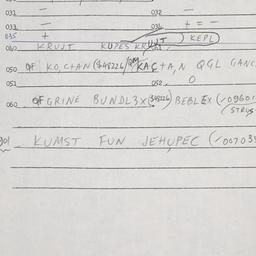 031 — 032 —
033 — 034 + = —
035 +
040 KRUJT KUPES KRUJT ) KEPL)
050 OF KO, C+AN (348226/ KAC+A, N QGL GANC
051 052 0
060 OF GRINE BUNDL 3X (348226) BEBLEX (-09601
(STRUS
901 KUMST FUN JEHUPEC (-00703